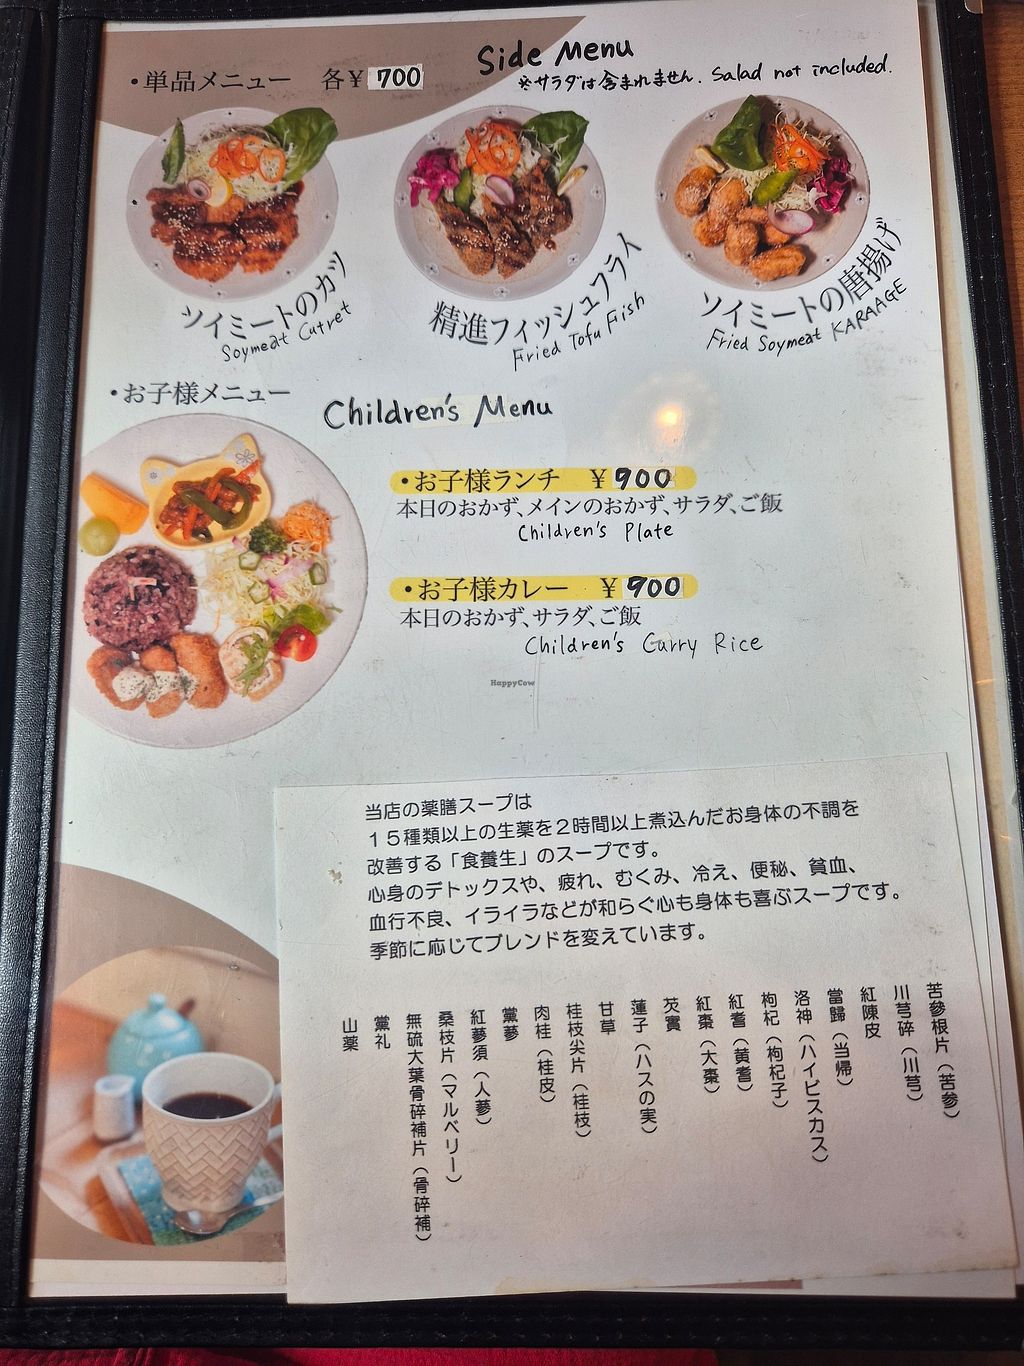 ・単品メニュー 各¥ 700
Side Menu
※サラダは含まれません. Salad not included.
ソイミートのカツ
Soymeat Cutret
精進フィッシュフライ
Fried Tofu Fish
ソイミートの唐揚げ
Fried Soymeat KARAAGE
・お子様メニュー
Children's Menu
・お子様ランチ ¥900
本日のおかず、メインのおかず、サラダ、ご飯
Children's Plate
・お子様カレー ¥900
本日のおかず、サラダ、ご飯
Children's Curry Rice
HappyCow
当店の薬膳スープは
15種類以上の生薬を2時間以上煮込んだお身体の不調を
改善する「食養生」のスープです。
心身のデトックスや、疲れ、むくみ、冷え、便秘、貧血、
血行不良、イライラなどが和らぐ心も身体も喜ぶスープです。
季節に応じてブレンドを変えています。
苦參根片（苦参）
川芎碎（川芎）
紅陳皮
當歸（当帰）
洛神（ハイビスカス）
枸杞（枸杞子）
紅耆（黄耆）
紅棗（大棗）
芡實
蓮子（ハスの実）
甘草
桂枝尖片（桂枝）
肉桂（桂皮）
黨蔘
紅蔘須（人蔘）
桑枝片（マルベリー）
無硫大葉骨碎補片（骨碎補）
黨礼
山薬